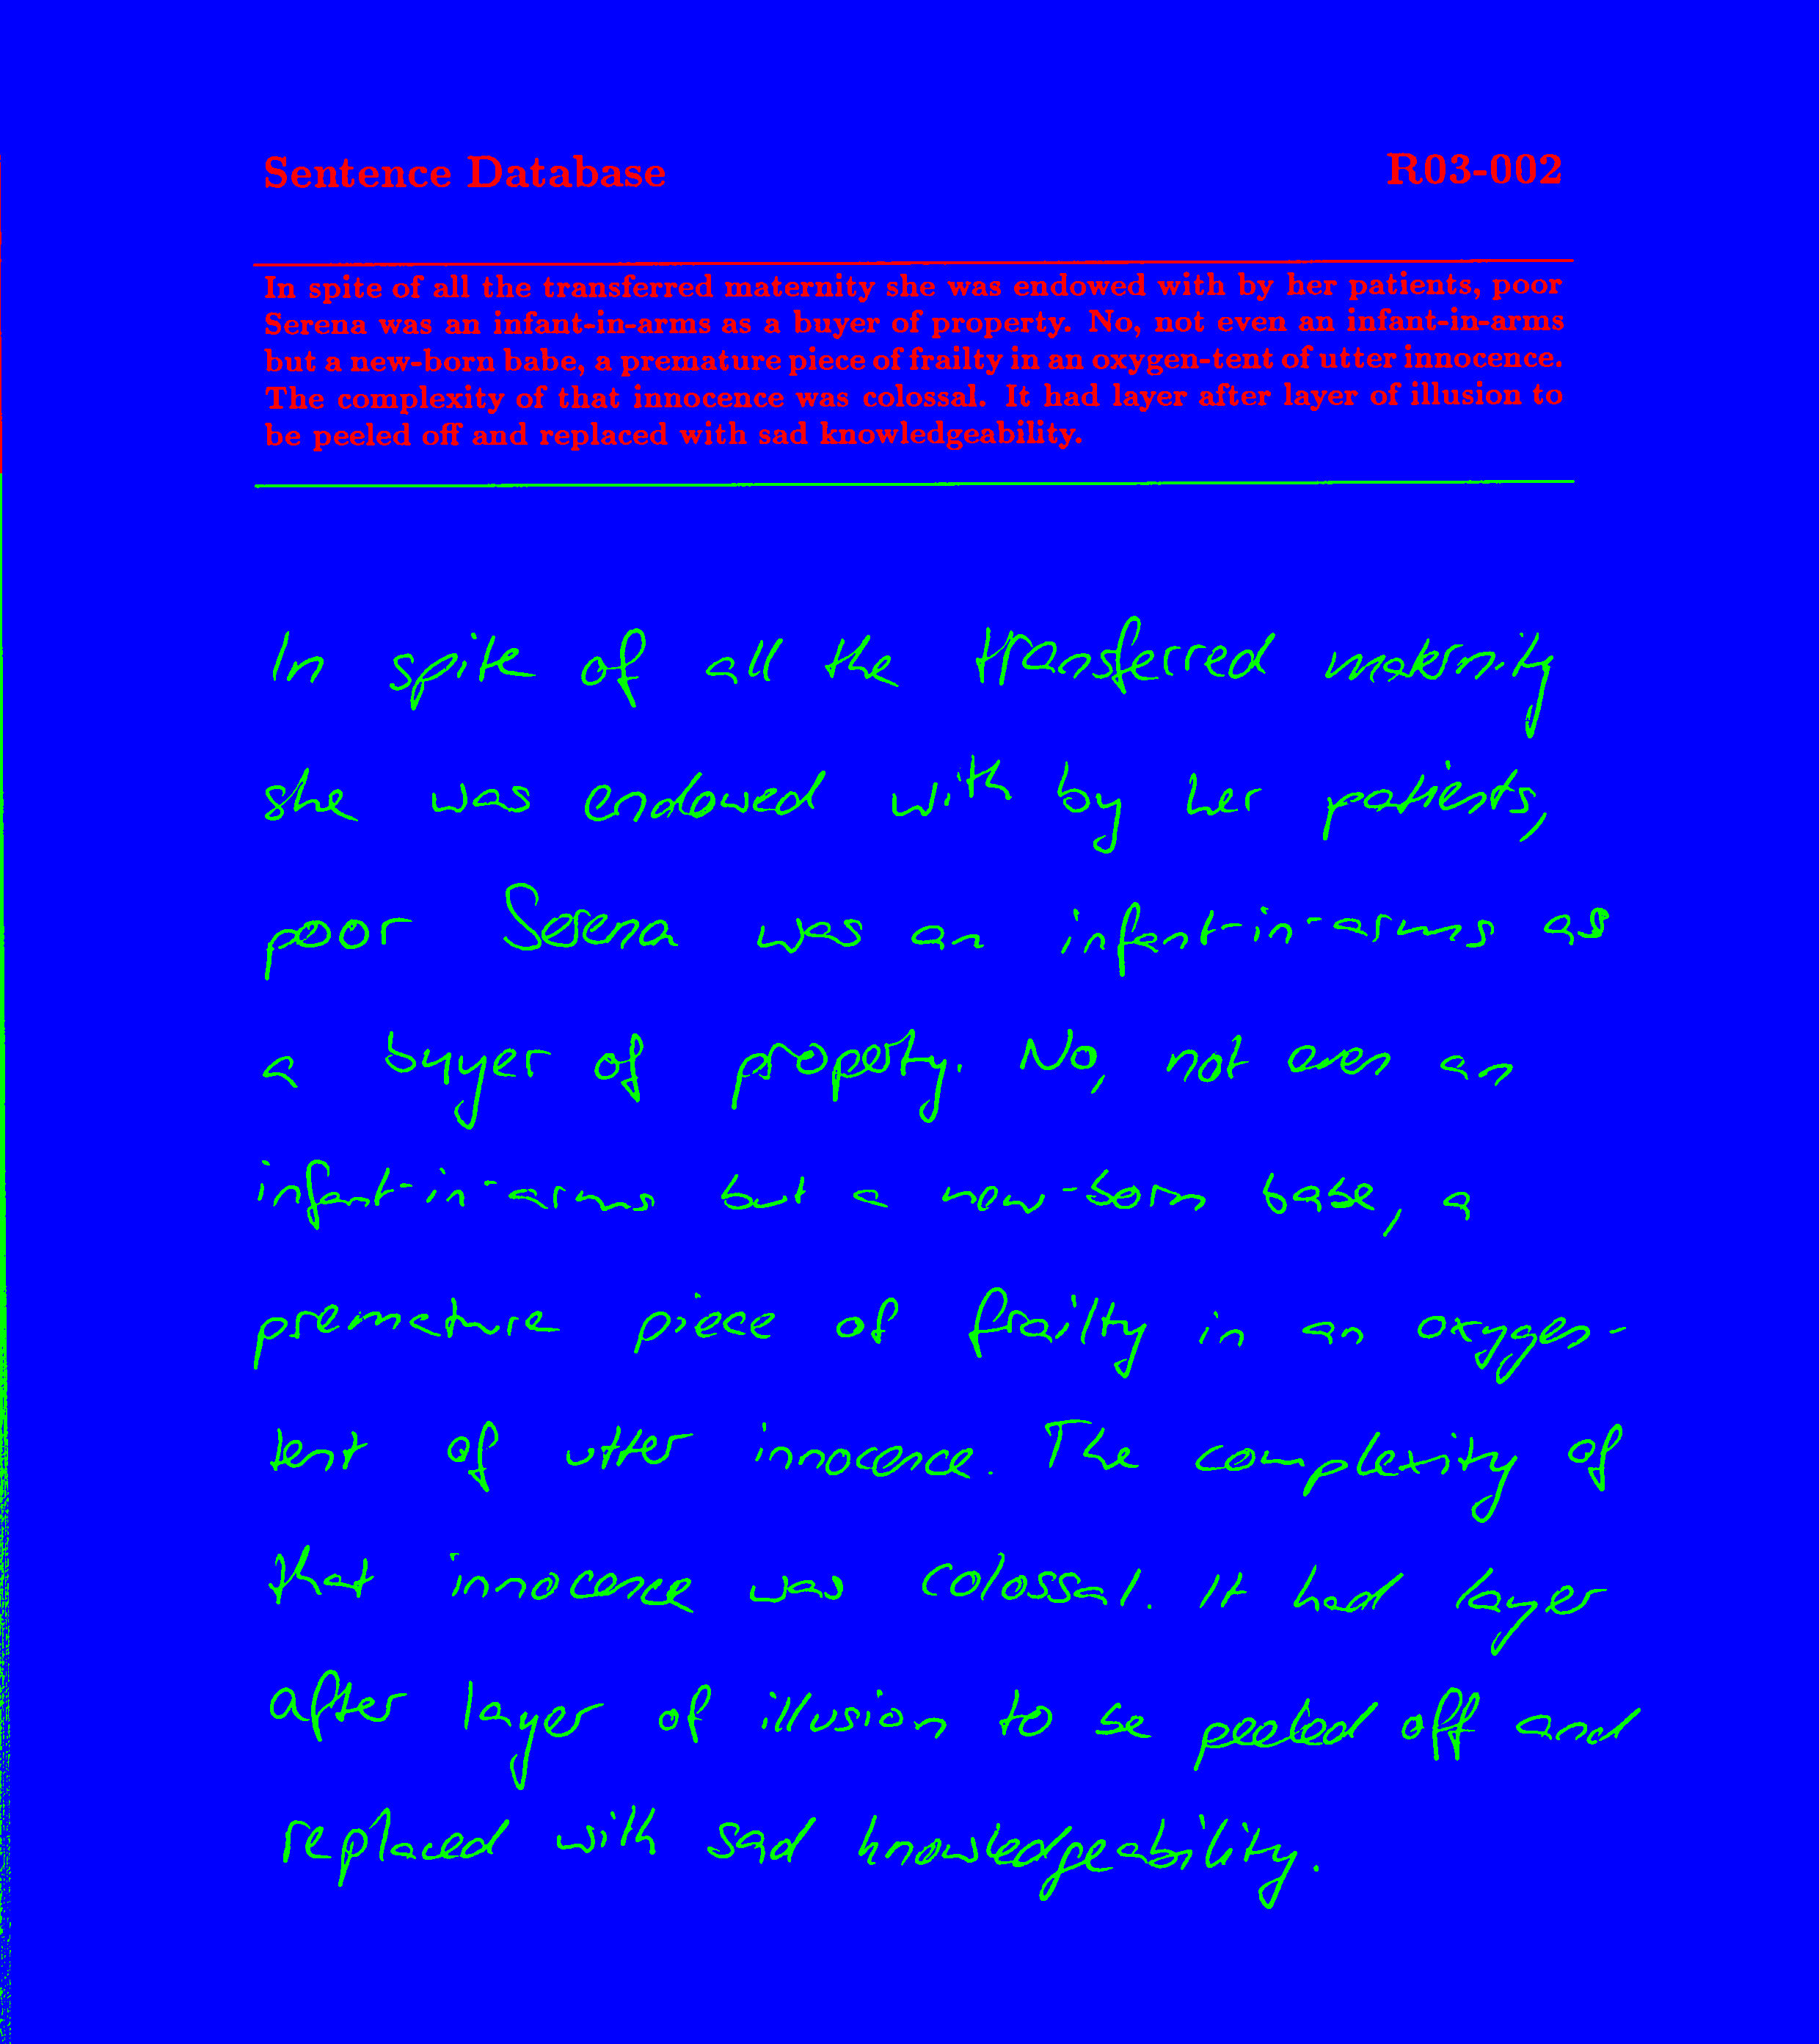 Sentence Database R03-002
In spite of all the transferred maternity she was endowed with by her patients, poor
Serena was an infant-in-arms as a buyer of property. No, not even an infant-in-arms
but a new-born babe, a premature piece of frailty in an oxygen-tent of utter innocence.
The complexity of that innocence was colossal. It had layer after layer of illusion to
be peeled off and replaced with sad knowledgeability.
In spite of all the transferred maternity
she was endowed with by her patients,
poor Serena was an infant-in-arms as
a buyer of property. No, not even an
infant-in-arms but a new-born babe, a
premature piece of frailty in an oxygen-
tent of utter innocence. The complexity of
that innocence was colossal. It had layer
after layer of illusion to be peeled off and
replaced with sad knowledgeability.